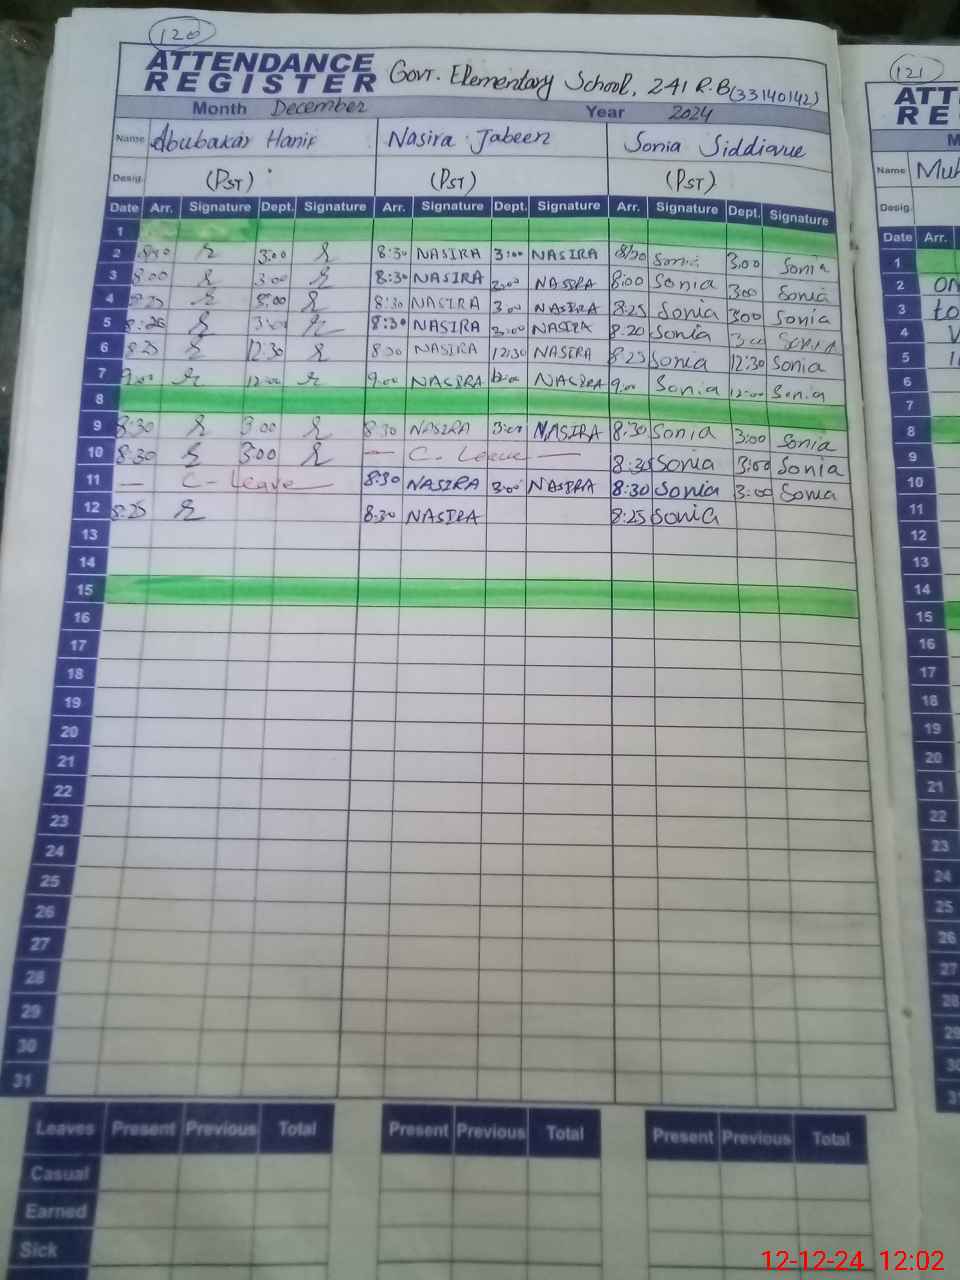 120
ATTENDANCE REGISTER Govt. Elementary School, 241 R.B (33140142)
Month December Year 2024
Name Abubakar Hanif Nasira Jabeen Sonia Siddique
Desig. (PST) (PST) (PST)
Date Arr. Signature Dept. Signature Arr. Signature Dept. Signature Arr. Signature Dept. Signature
1
2 8:30 3:00 8:30 NASIRA 3:00 NASIRA 8:30 Sonia 3:00 Sonia
3 8:00 3:00 8:30 NASIRA 3:00 NASIRA 8:00 Sonia 3:00 Sonia
4 8:25 3:00 8:30 NASIRA 3:00 NASIRA 8:25 Sonia 3:00 Sonia
5 8:26 3:00 8:30 NASIRA 3:00 NASIRA 8:20 Sonia 3:00 Sonia
6 8:25 12:30 8:30 NASIRA 12:30 NASIRA 8:25 Sonia 12:30 Sonia
7 9:00 12:00 9:00 NASIRA 12:00 NASIRA 9:00 Sonia 12:00 Sonia
8
9 8:30 3:00 8:30 NASIRA 3:00 NASIRA 8:30 Sonia 3:00 Sonia
10 8:30 3:00 — C-Leave — 8:35 Sonia 3:00 Sonia
11 — C-Leave — 8:30 NASIRA 3:00 NASIRA 8:30 Sonia 3:00 Sonia
12 8:25 8:30 NASIRA 8:25 Sonia
13
14
15
16
17
18
19
20
21
22
23
24
25
26
27
28
29
30
31
Leaves Present Previous Total Present Previous Total Present Previous Total
Casual
Earned
Sick
121
ATT
RE
M
Name Muh
Desig.
Date Arr.
1
2 on
3 to
4
5
6
7
8
9
10
11
12
13
14
15
16
17
18
19
20
21
22
23
24
25
26
27
28
29
30
12-12-24 12:02